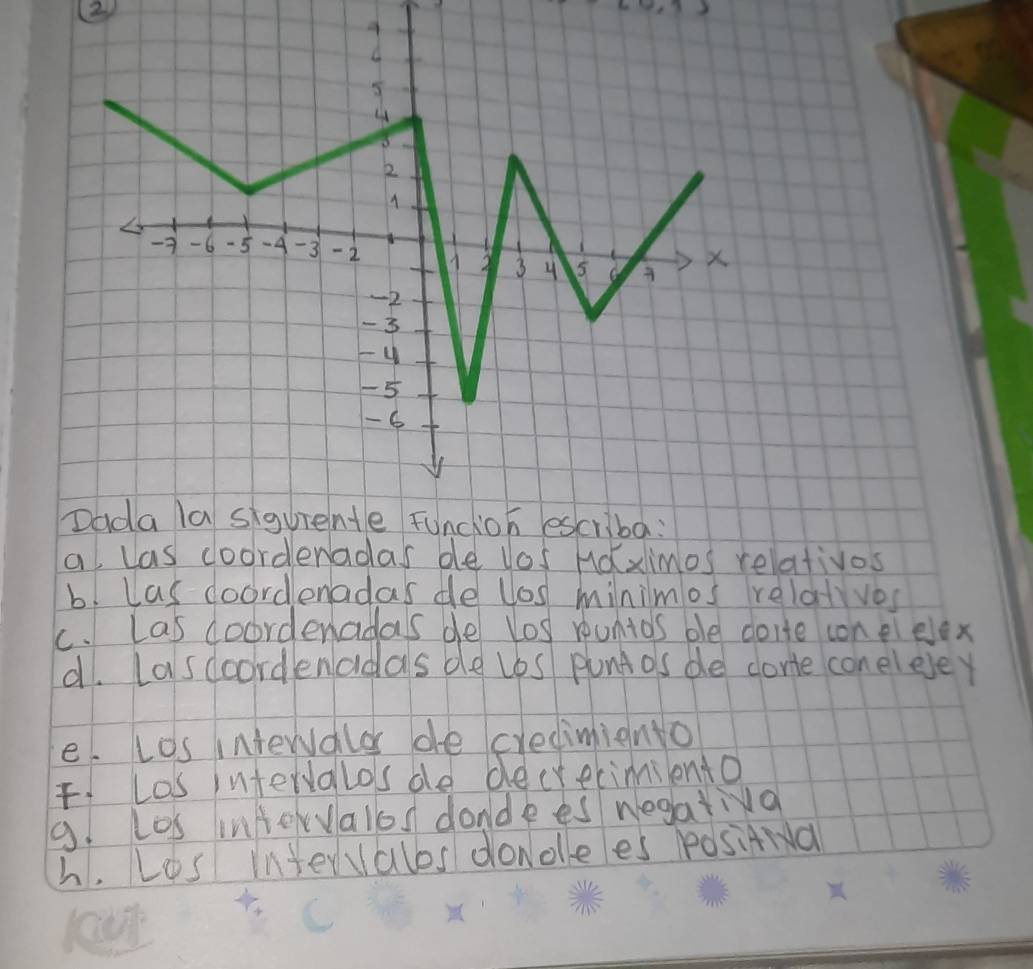 2
7
6
5
4
3
2
1
-7 -6 -5 -4 -3 -2 1 2 3 4 5 6 7 x
-2
-3
-4
-5
-6
Dada la siguiente Función escriba:
a. Las coordenadas de los Máximos relativos
b. Las coordenadas de los minimos relativos
c. Las coordenadas de los puntos de corte con el eje x
d. Las coordenadas de los puntos de corte con el eje y
e. Los intervalos de crecimiento
F. Los intervalos de decrecimiento
g. Los intervalos donde es negativa
h. Los intervalos donde es positiva